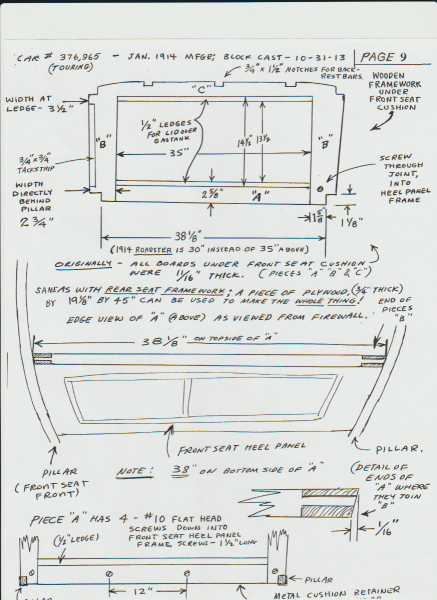 CAR # 376,965 - JAN. 1914 MFGR; BLOCK CAST - 10-31-13
PAGE 9
(TOURING)
3/4" x 1 1/2" NOTCHES FOR BACK-
REST BARS.
WOODEN
FRAMEWORK
UNDER
FRONT SEAT
CUSHION
"C"
WIDTH AT
LEDGE - 3 1/2"
1/2" LEDGES
FOR LID OVER
GAS TANK
"B"
"B"
14 1/2
13 1/2
35"
3/4" x 3/4"
TACKSTRIP
SCREW
THROUGH
JOINT,
INTO
HEEL PANEL
FRAME
WIDTH
DIRECTLY
BEHIND
PILLAR
2 3/4"
2 5/8"
"A"
1 1/8"
38 1/8"
(1914 ROADSTER IS 30" INSTEAD OF 35" ABOVE)
ORIGINALLY - ALL BOARDS UNDER FRONT SEAT CUSHION
WERE 11/16" THICK. (PIECES "A" "B" & "C")
SAME AS WITH REAR SEAT FRAMEWORK; A PIECE OF PLYWOOD, (3/4" THICK)
BY 19 1/8" BY 45" CAN BE USED TO MAKE THE WHOLE THING!
END OF
PIECES
"B"
EDGE VIEW OF "A" (ABOVE) AS VIEWED FROM FIREWALL.
38 1/8" ON TOPSIDE OF "A"
FRONT SEAT HEEL PANEL
PILLAR
(FRONT SEAT
FRONT)
PILLAR.
NOTE: 38" ON BOTTOM SIDE OF "A"
(DETAIL OF
ENDS OF
"A" WHERE
THEY JOIN
"B"
1/16"
PIECE "A" HAS 4 - #10 FLAT HEAD
SCREWS DOWN INTO
FRONT SEAT HEEL PANEL
FRAME SCREWS - 1 1/2" LONG
(1/2" LEDGE)
12"
PILLAR
METAL CUSHION RETAINER